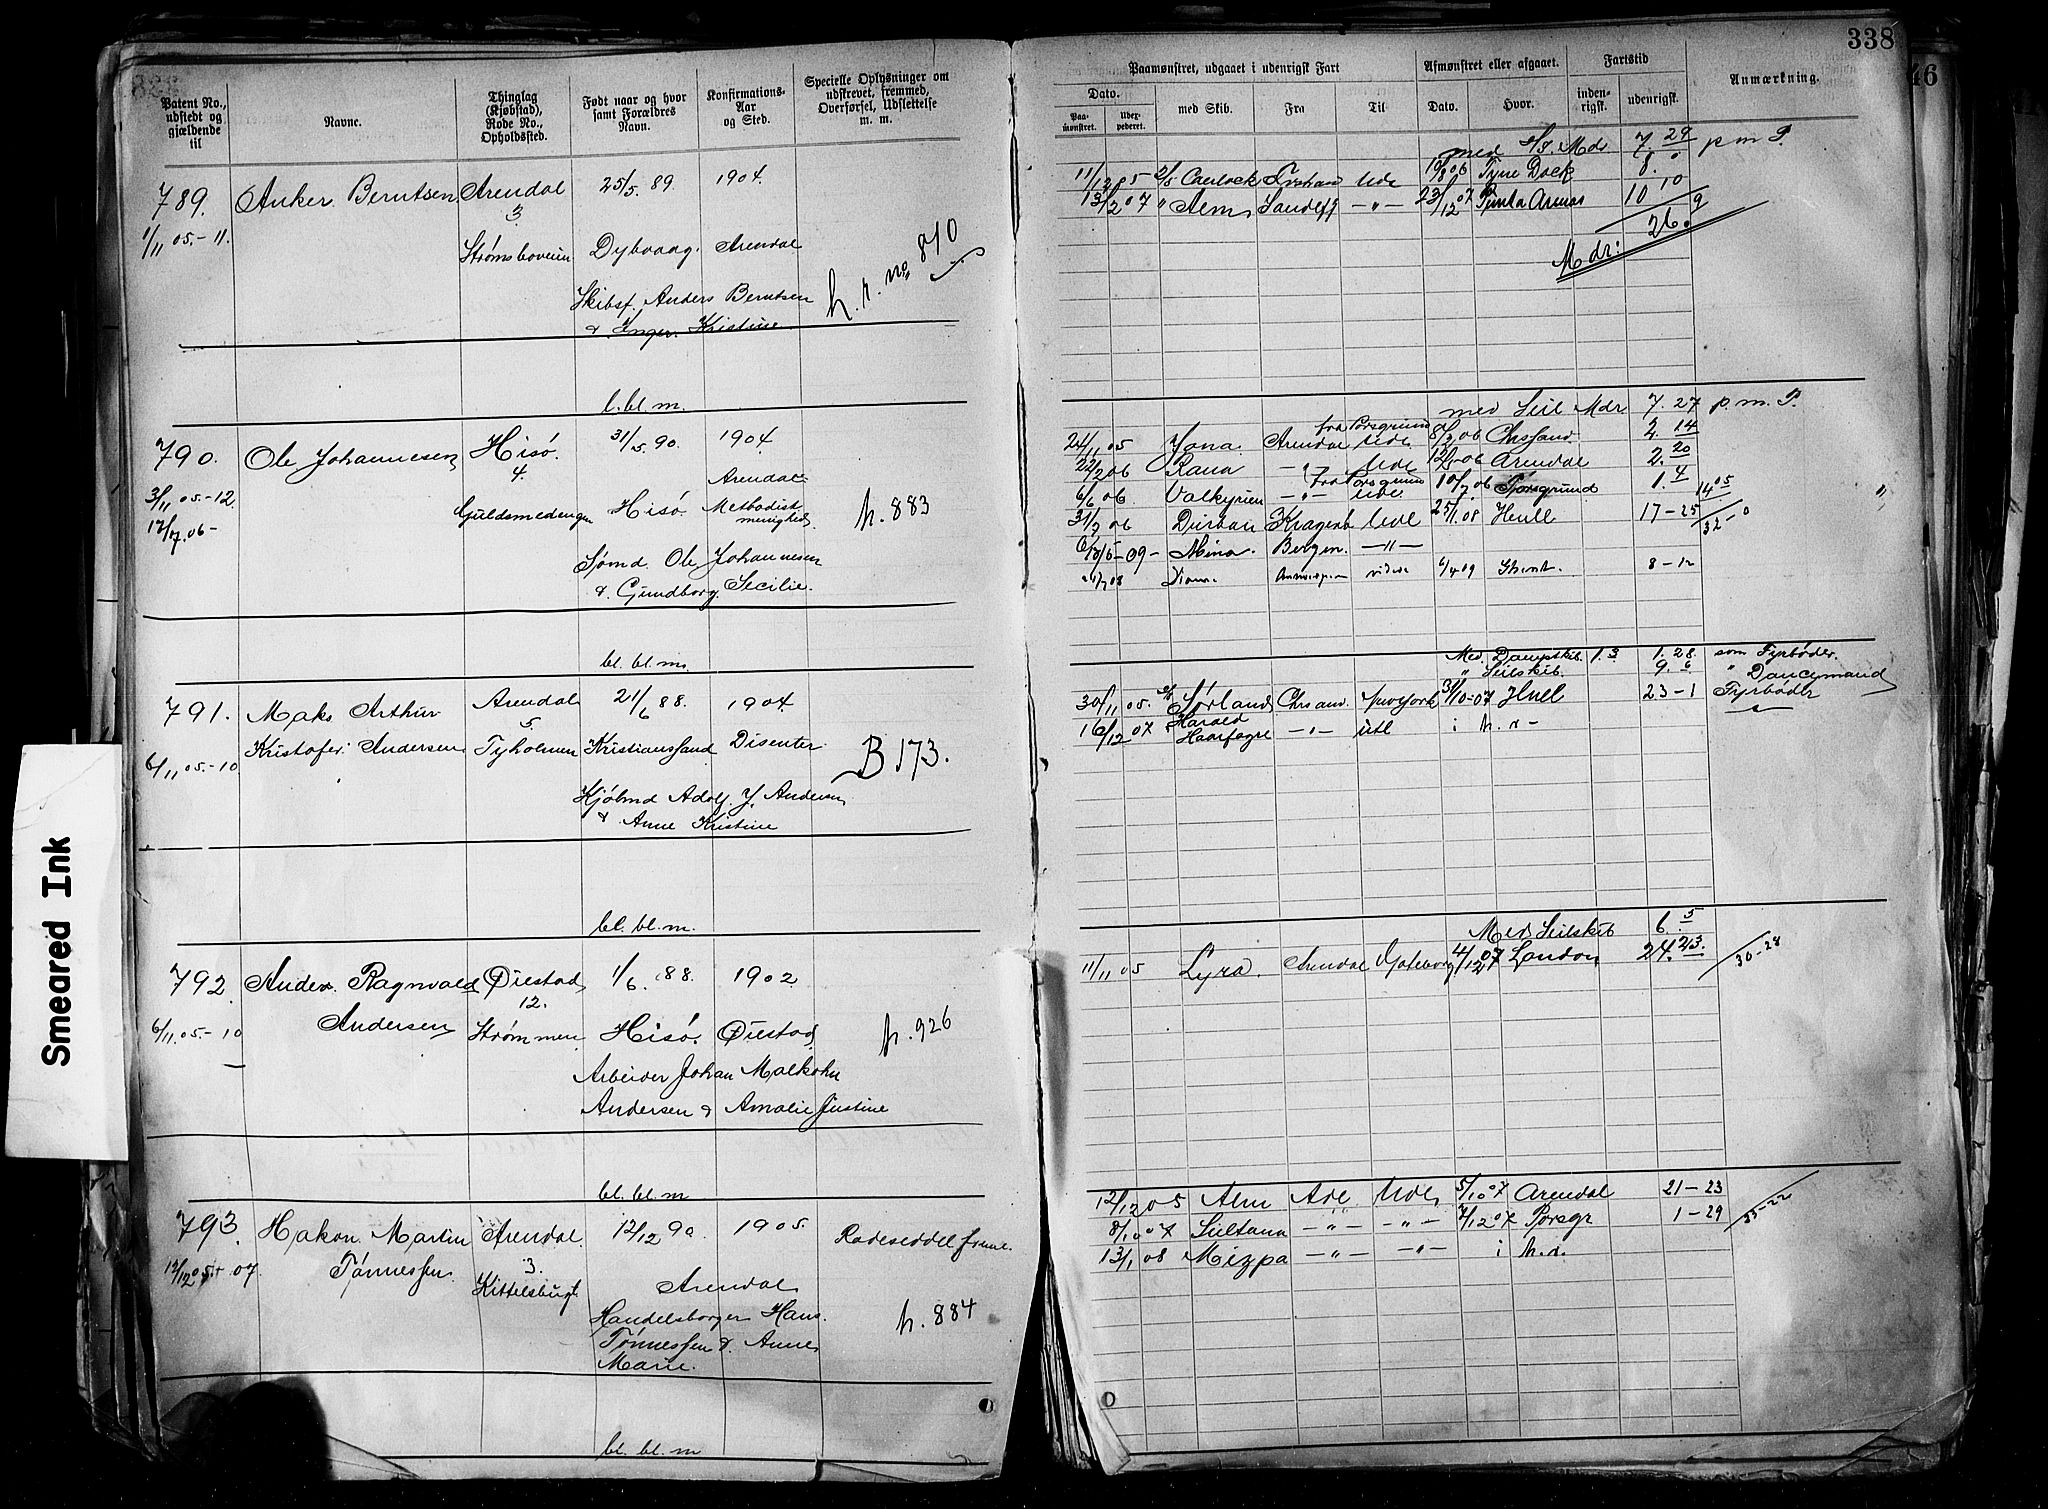 338
46
Patent No., udstedt og gjældende til
Navne.
Thinglag (Kjøbstad), Rode No., Opholdssted.
Født naar og hvor samt Forældres Navn.
Konfirmations-Aar og Sted.
Specielle Oplysninger om udskrevet, fremmed, Overførsel, Udslettelse m. m.
Paamønstret, udgaaet i udenrigsk Fart
Afmønstret eller afgaaet.
Fartstid
Anmærkning.
Dato.
Paa-mønstret.
med Skib.
Fra
Til
Dato.
Hvor.
inden-rigsk.
udenrigsk.
789. Anker Berntsen Arendal 25/5 89. 1904.
3
1/11 05.-11. Dybvaag. Arendal
Skibsf. Anders Berntsen
& Inger Kristine.
h. r. no. 810
med S/S. Mdr 7. 29 p m P.
Tyne Dock 8. 0
13/2 07 " Alm Sandefj - " - 23/12 07 Punta Arenas 10 10
26. 9
Mdr:
bl. bl. m.
790. Ole Johannesen Hisø. 31/5 90. 1904.
4.
Arendal
3/11 05.-12 Guldsmedengen Hisø Methodist menighed.
17/7. 06-
h. 883
Sømd. Ole Johannesen
& Gundborg Secilie.
med Seil Mdr 7. 27 p. m. P.
fra Porsgrund
24/11 05 Arendal Ude 8/2 06 Chrsand. 2. 14
22/2 06 Rana - " - Ude 12/5 06 Arendal 2. 20
fra Porsgrund
6/6 06 Valkyrien - " - Ude 10/7 06 Porsgrund 1. 4
14 05
31/7 06 Durban Kragerø Ude 25/1 08 Hull 17-25
32-0
Mina. Bergen. - " -
6/4 09 Ghent. 8-12
bl. bl. m.
791. Maks Arthur Arendal 21/6 88. 1904.
5.
6/11 05.-10 Kristofer Andersen Tyholmen Kristianssand Disenter
B 173.
Kjøbmd Adolf J. Andersen
& Anne Kristine
Med Dampskib. 1. 3. 1. 28. som Fyrbøder.
" Seilskib. 9. 6 " Danceymand
30/11 05. S/S Sørland Chrsand Newyork 31/10-07 Hull 23-1 Fyrbøder
16/12 07 " Harald Haarfagre - " - utl i h. r -
bl. bl. m.
792. Anders Ragnvald Øiestad 1/6 88. 1902
12.
6/11. 05-10 Andersen Strømmen Hisø. Øiestad
h. 926
Arbeider Johan Malkohn
Andersen & Amalie Justine
Med Seilskib 6. 5
11/11 05 Lyra. Arendal Goteborg 4/12 07 London 24. 23.
30-28
bl. bl. m
793. Hakon Martin Arendal 12/12 90 1905.
3.
12/12 05.- 07 Tønnessen. Kittelsbugt Arendal
Rodeseddel
h. 884
Handelsborger Hans
Tønnessen & Anne
Marie.
12/12 05 Alm Adl Ude 5/10 07 Arendal 21-23
8/10 07 Sultana - " - - " - 7/12 07 Porsgr 1-29
13/1 08 Mizpa - " - - " - i h. r.
bl. bl. m
Smeared Ink